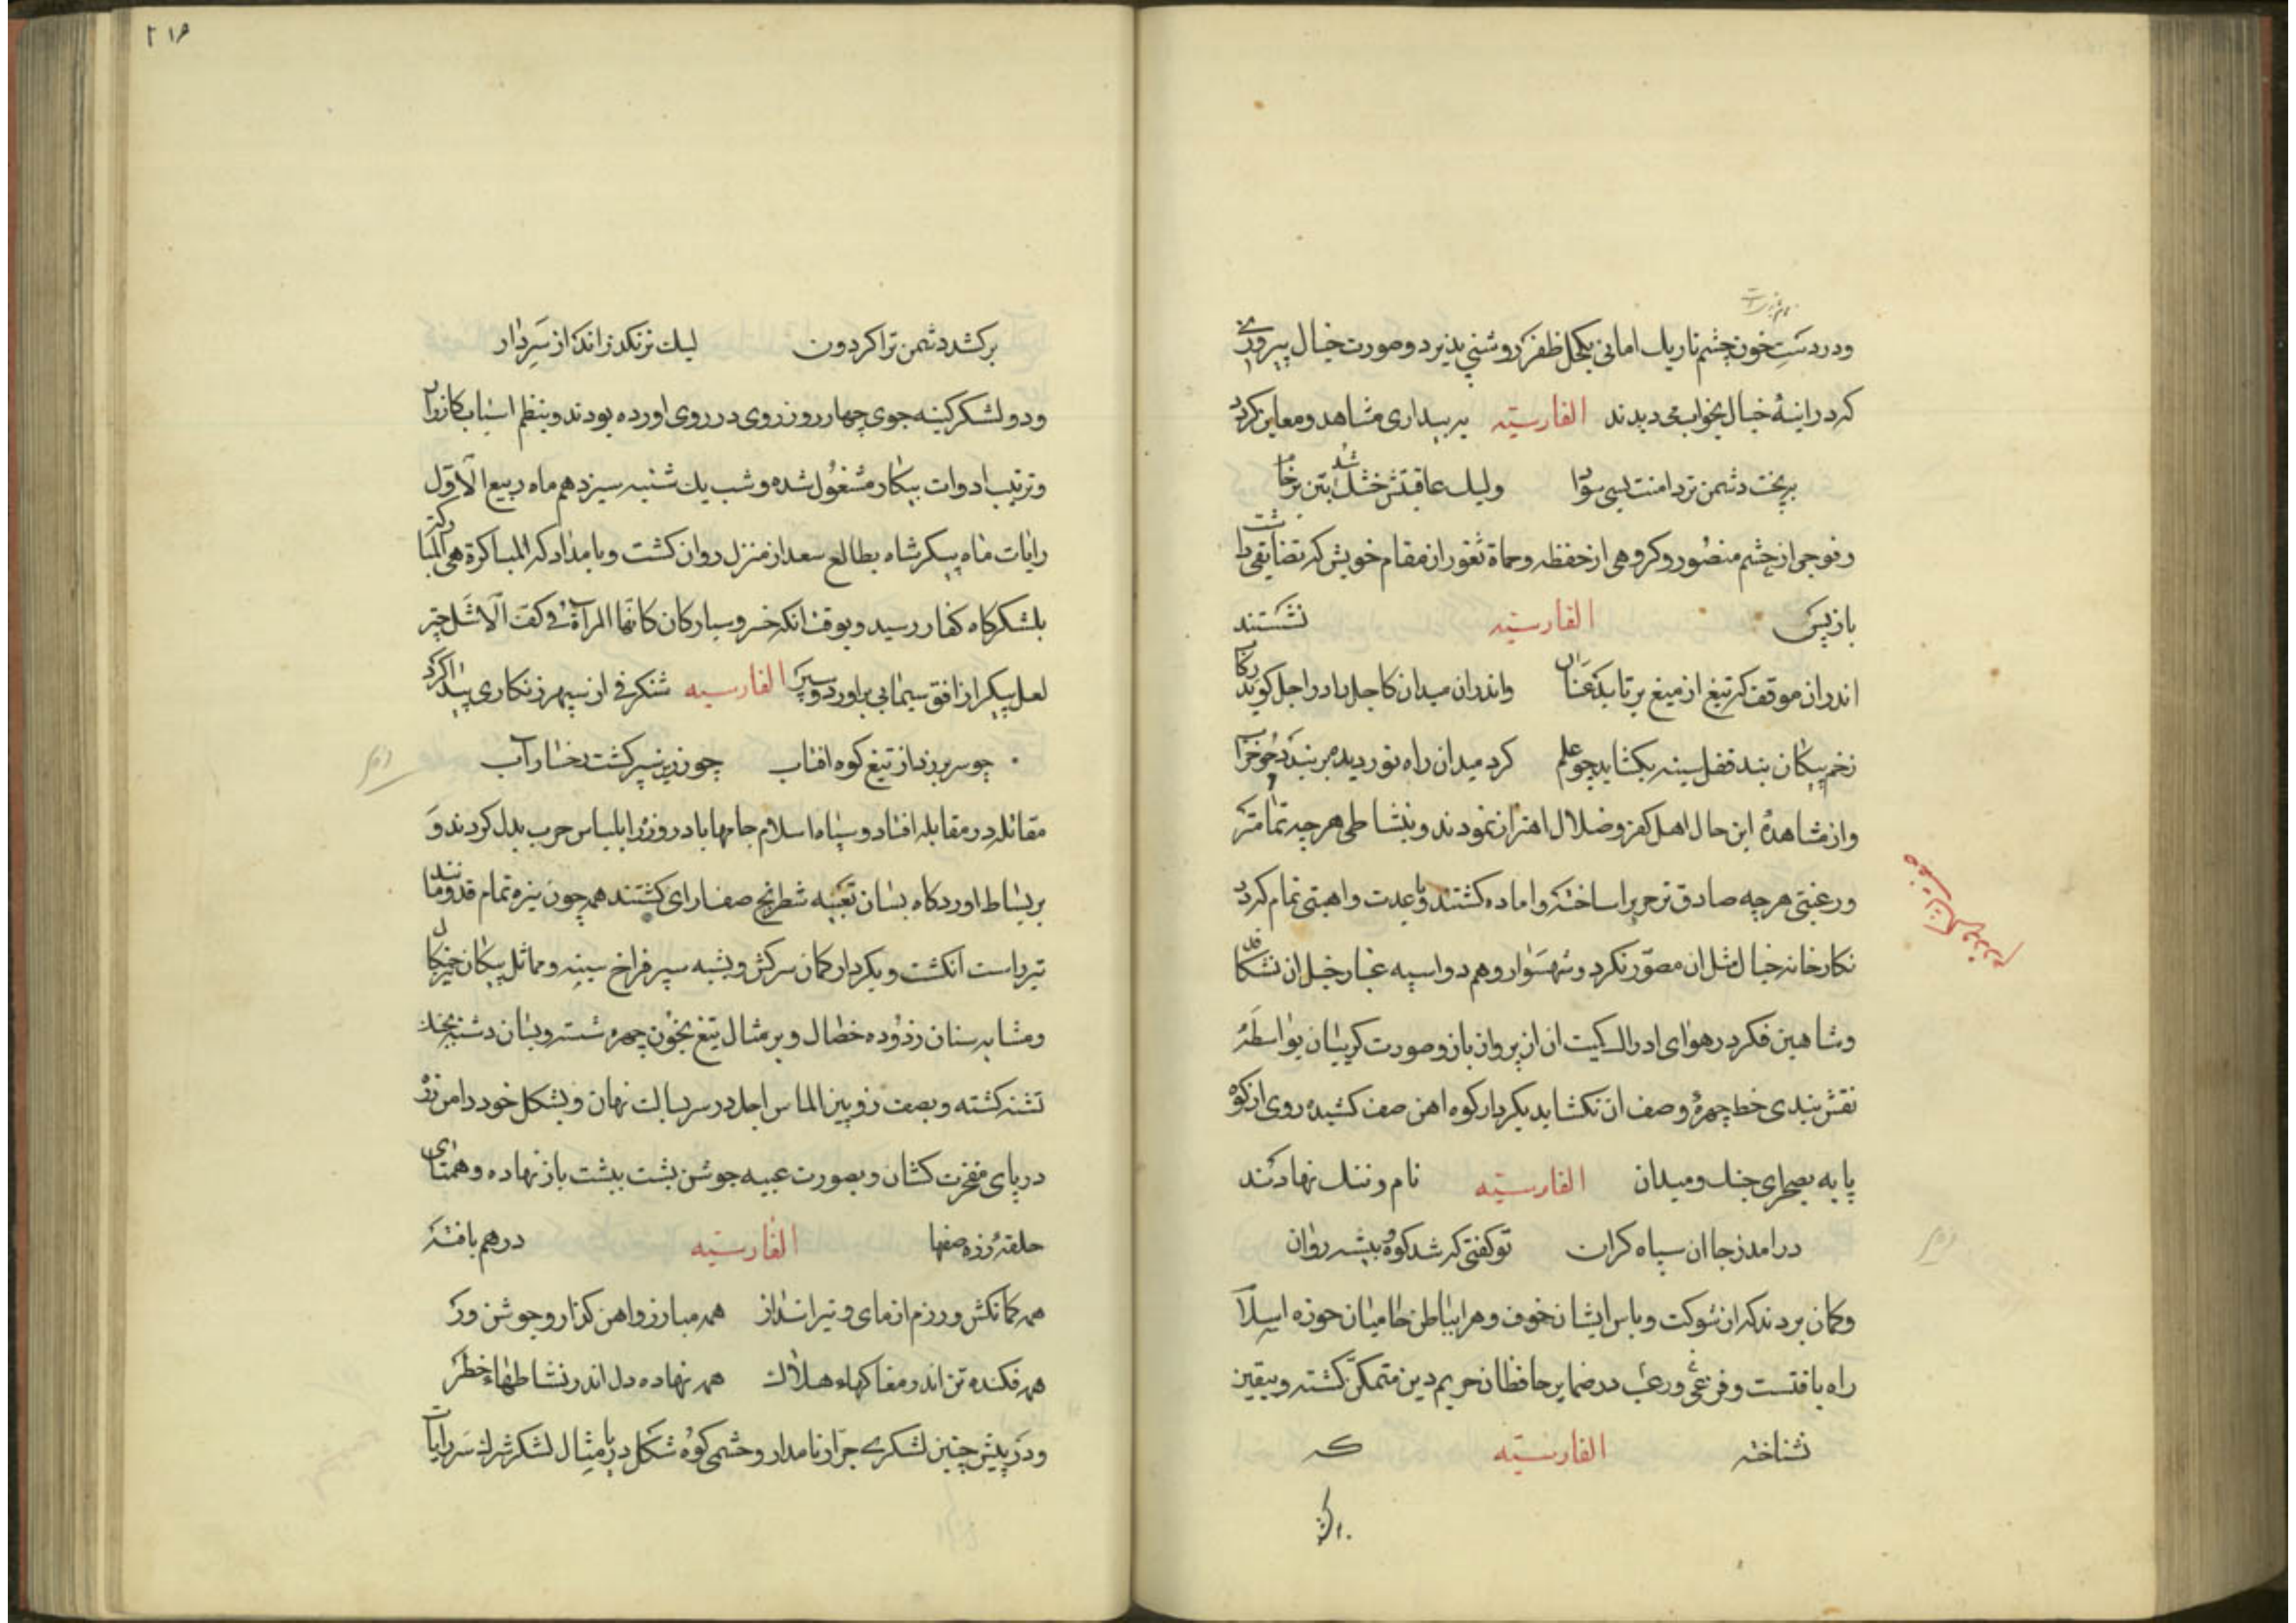 ودر دست خون چشم تاریک امانی بکحل ظفر روشنی پذیرد وصورت خیال پیروزی
که در اینهٔ خیال بخواب می دیدند الفارسیّه به بیداری مشاهد ومعاین کردد
بریخت دشمن تردامنت بسی سودا ولیک عاقبتش خشک شد بتن بر خا
وفوجی از حشم منصور وکروهی از حفظه وحماة ثغور از مقام خویش که تضایقی داشت
باز پس الفارسیّه نشستند
اندران موقف که تیغ از میغ برتابد عنان واندران میدان کاجل باد را جل کوید رکاب
زخم پیکان بند قفل سینه بکشاید چو علم کرد میدان راه نوردیده بر بندد چو خواب
واز مشاهدهٔ این حال اهل کفر وضلال اهتزاز نمودند وبنشاطی هرچه تمامتر
ورغبتی هرچه صادق تر حرب را ساخته واماده کشتند وبا عدت واهبتی تمام که در
نکارخانه خیال مثل ان مصوّر نکردد وشهسوار وهم دواسپه غبار خیل ان نشکافد
وشاهین فکر در هوای ادراک کمیت ان از پرواز باز وصورت کر بیان بواسطهٔ
نقش بندی خط چهرهٔ وصف ان نکشاید بکردار کوه اهن صف کشیده روی از کوه
پایه بصحرای جنک ومیدان الفارسیّه نام وننک نهادند
درامد ز جا ان سپاه کران تو کفتی که شد کوه وبیشه روان
وکمان بردند که از شوکت وباس ایشان خوف وهراس بباطن حامیان حوزه اسلام
راه یافتست وفزعی ورعب در ضمایر حافظان حریم دین متمکن کشته وبیقین
نشناخته الفارسیّه که
۲۱۵
برکشد دشمن ترا کردون لیک نزنکدزاند از سر دار
ودو لشکر کینه جوی چهار روز روی در روی اورده بودند وبنظم اسباب کارزار
وترتیب ادوات پیکار مشغول شده وشب یک شنبه سیزدهم ماه ربیع الاوّل
رایات ماه پیکر شاه بطالع سعد از منزل روان کشت وبامداد که المباکرة هی المبارکة
بلشکرکاه کفار رسید وبوقت انکه خسرو سیارکان کانّها المراة فی کف الاشل چتر
لعل پیکر از افق سیمابی براورد وسپر الفارسیه شنکرفی از سپهر زنکاری پیدا کرد
چو سر برزد از تیغ کوه افتاب چو زرین سپر کشت رخسار آب
مقاتله در مقابله افتاد وسپاه اسلام جامها باد روزه را بلباس حرب بدل کردند و
بر بساط اوردکاه بسان تعبیه شطرنج صف ارای کشتند همه چون نیزه تمام قد ومانند
تیر راست انکشت وبکردار کمان سرکش وبشبه سپر فراخ سینه ومماثل پیکان خیرکال
ومشابه سنان زدوده خصال وبر مثال تیغ بخون چهره شسته وبسان دشنه بخنک
تشنه کشته وبصفت زوپین الماس اجل در سر نهان وبشکل خود دامن زر
در پای مفخرت کشان وبصورت عیبه جوشن پشت بپشت باز نهاده وهمتای
حلقه زره صفها الفارسیّه درهم بافته
همه کمانکش ورزم ازمای وتیرانداز همه مبارز واهن کذار وجوشن ور
همه فکنده تن اندر مغاکهاء هلاک همه نهاده دل اندر نشاطهاء خطر
ودر پیش چنین لشکری جرّار نامدار وحشمی کوه شکل دریا مثال لشکر شرک سر رایات